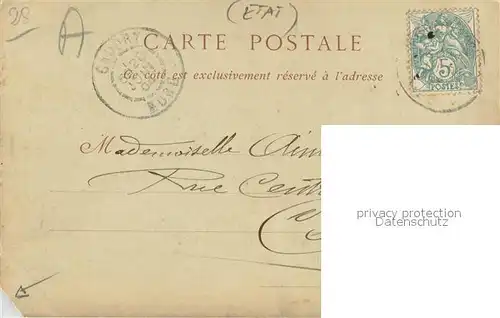 28
A
(ETAT)
CARTE POSTALE
Ce côté est exclusivement réservé à l'adresse
5
POSTES
Mademoiselle
Rue
privacy protection
Datenschutz